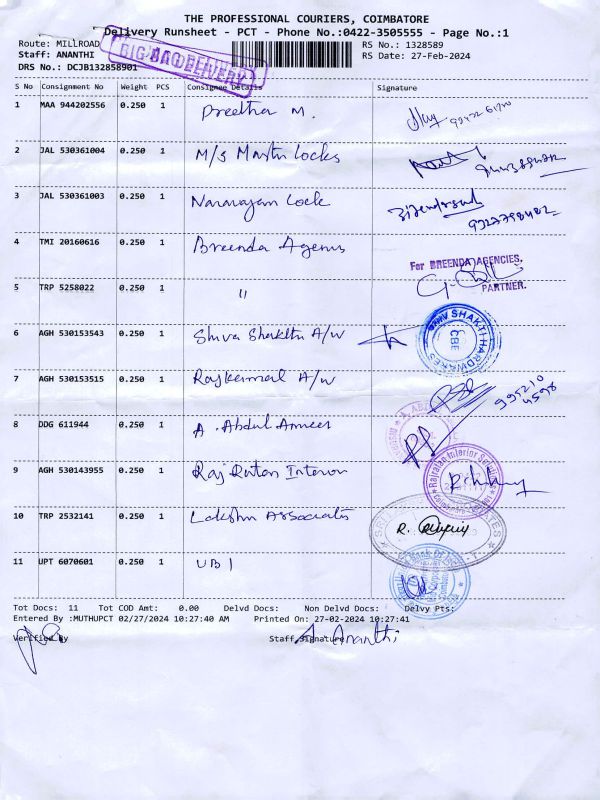 THE PROFESSIONAL COURIERS, COIMBATORE
Delivery Runsheet - PCT - Phone No.:0422-3505555 - Page No.:1
Route: MILLROAD
RS No.: 1328589
Staff: ANANTHI
RS Date: 27-Feb-2024
DRS No.: DCJB132858901
S No Consignment No Weight PCS Consignee Details Signature
1 MAA 944202556 0.250 1 Preetha M.
2 JAL 530361004 0.250 1 M/s Martin Locks
3 JAL 530361003 0.250 1 Narayan Lock
4 TMI 20160616 0.250 1 Breenda Agenus
For BREENDA AGENCIES,
PARTNER.
5 TRP 5258022 0.250 1 "
6 AGH 530153543 0.250 1 Shiva Shakthi A/W
SHIV SHAKTI HARDWARES
CBE
7 AGH 530153515 0.250 1 Rajkamal A/W
8 DDG 611944 0.250 1 A. Abdul Ameer
9 AGH 530143955 0.250 1 Raj Ratan Interior
Rajratan Interior
10 TRP 2532141 0.250 1 Lakshmi Associates
11 UPT 6070601 0.250 1 UBI
Tot Docs: 11 Tot COD Amt: 0.00 Delvd Docs: Non Delvd Docs: Delvy Pts:
Entered By :MUTHUPCT 02/27/2024 10:27:40 AM Printed On: 27-02-2024 10:27:41
Verified By Staff Signature
A. Ananthi